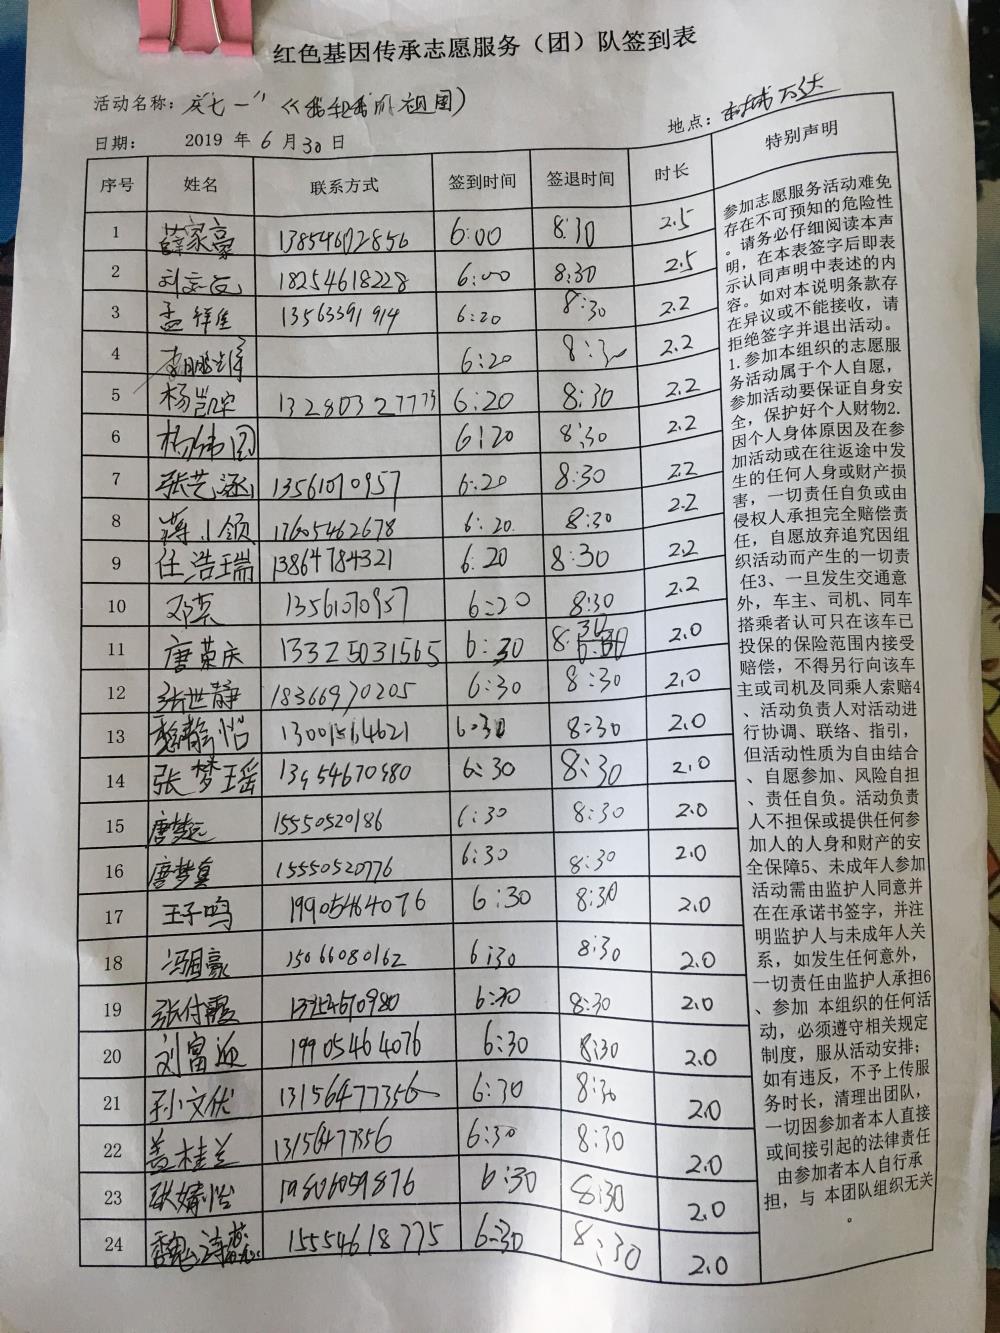 红色基因传承志愿服务（团）队签到表
活动名称：庆"七一"《我和我的祖国》
地点：万达
日期： 2019 年 6 月 30 日
序号 姓名 联系方式 签到时间 签退时间 时长 特别声明
1 薛家豪 13854602856 6:00 8:30 2.5
2 刘 18254618228 6:00 8:30 2.5
3 孟祥 13563391914 6:20 8:30 2.2
4 李鹏 6:20 8:30 2.2
5 杨凯 13280327773 6:20 8:30 2.2
6 杨伟国 6:20 8:30 2.2
7 张艺涵 13561070957 6:20 8:30 2.2
8 蒋小领 17605462678 6:20 8:30 2.2
9 任浩瑞 13864784321 6:20 8:30 2.2
10 邓英 13561070957 6:20 8:30 2.2
11 唐荣庆 13325031565 6:30 8:30 2.0
12 张世静 18366970205 6:30 8:30 2.0
13 静怡 13001564621 6:30 8:30 2.0
14 张梦瑶 6:30 8:30 2.0
15 唐梦远 15550520186 6:30 8:30 2.0
16 唐梦真 15550520776 6:30 8:30 2.0
17 王子鸣 19905464076 6:30 8:30 2.0
18 冯国豪 15066080162 6:30 8:30 2.0
19 张付霞 6:30 8:30 2.0
20 刘富迎 19905464076 6:30 8:30 2.0
21 孙文优 13156477356 6:30 8:30 2.0
22 盖桂兰 13156477356 6:30 8:30 2.0
23 耿婧怡 6:30 8:30 2.0
24 魏诗 15554618775 6:30 8:30 2.0
参加志愿服务活动难免
存在不可预知的危险性
。请务必仔细阅读本声
明，在本表签字后即表
示认同声明中表述的内
容。如对本说明条款存
在异议或不能接收，请
拒绝签字并退出活动。
1.参加本组织的志愿服
务活动属于个人自愿，
参加活动要保证自身安
全，保护好个人财物2.
因个人身体原因及在参
加活动或在往返途中发
生的任何人身或财产损
害，一切责任自负或由
侵权人承担完全赔偿责
任，自愿放弃追究因组
织活动而产生的一切责
任3、一旦发生交通意
外，车主、司机、同车
搭乘者认可只在该车已
投保的保险范围内接受
赔偿，不得另行向该车
主或司机及同乘人索赔4
、活动负责人对活动进
行协调、联络、指引，
但活动性质为自由结合
、自愿参加、风险自担
、责任自负。活动负责
人不担保或提供任何参
加人的人身和财产的安
全保障5、未成年人参加
活动需由监护人同意并
在在承诺书签字，并注
明监护人与未成年人关
系，如发生任何意外，
一切责任由监护人承担6
、参加 本组织的任何活
动，必须遵守相关规定
制度，服从活动安排；
如有违反，不予上传服
务时长，清理出团队，
一切因参加者本人直接
或间接引起的法律责任
由参加者本人自行承
担，与 本团队组织无关
。